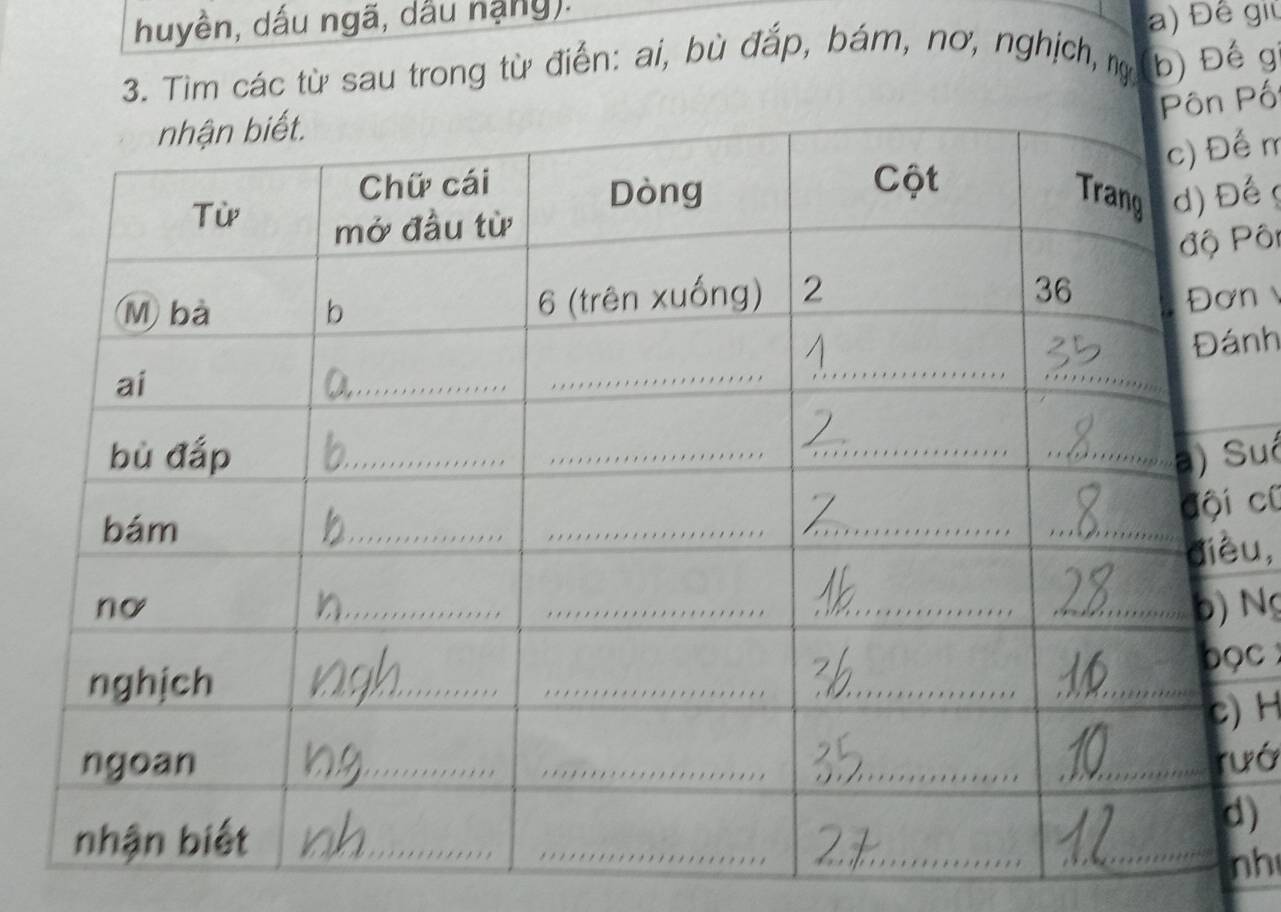 huyền, dấu ngã, dấu nặng).
3. Tìm các từ sau trong từ điển: ai, bù đắp, bám, nơ, nghịch,
nhận biết.
Từ Chữ cái mở đầu từ Dòng Cột Trang
M bà b 6 (trên xuống) 2 36
ai a 1 35
bù đắp b 2 8
bám b 2 8
nơ n 16 28
nghịch ngh 36 16
ngoan ng 35 10
nhận biết nh 27 12
a) Để
b) Để
Pôn
c) Để
d) Để
độ
Đơn
Đánh
a)
đội
điều,
b)
bọc
c)
d)